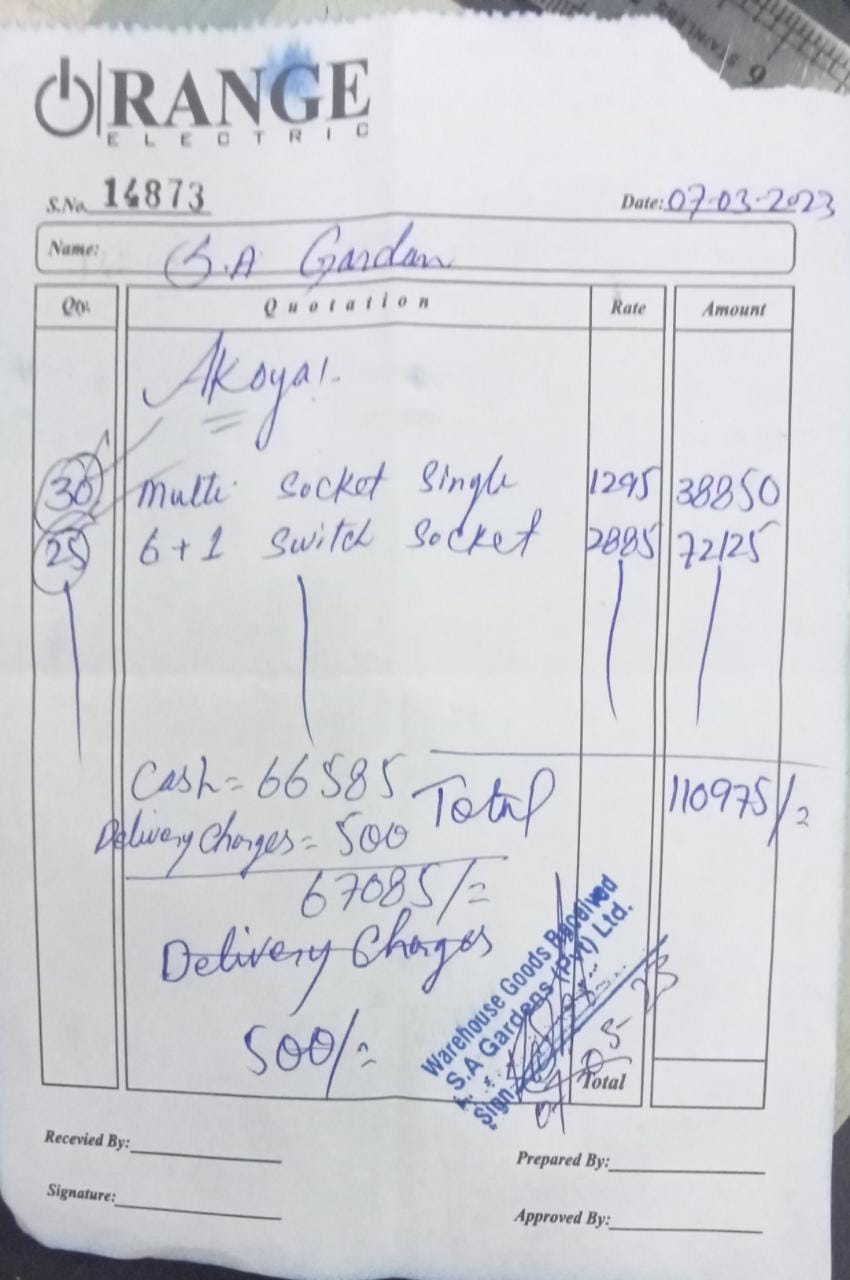 ORANGE
ELECTRIC
S.No. 14873
Date: 07-03-2023
Name: S.A Gardan
Qty. Quotation Rate Amount
Akoya!
30 Multi Socket Single 1295 38850
25 6+1 Switch Socket 2885 72125
Cash = 66585 Total 110975/=
Delivery Charges = 500
67085/=
Delivery Charges
500/=
Warehouse Goods Received
S.A Gardens (Pvt) Ltd.
Sign
Total
Recevied By:
Prepared By:
Signature:
Approved By:
9